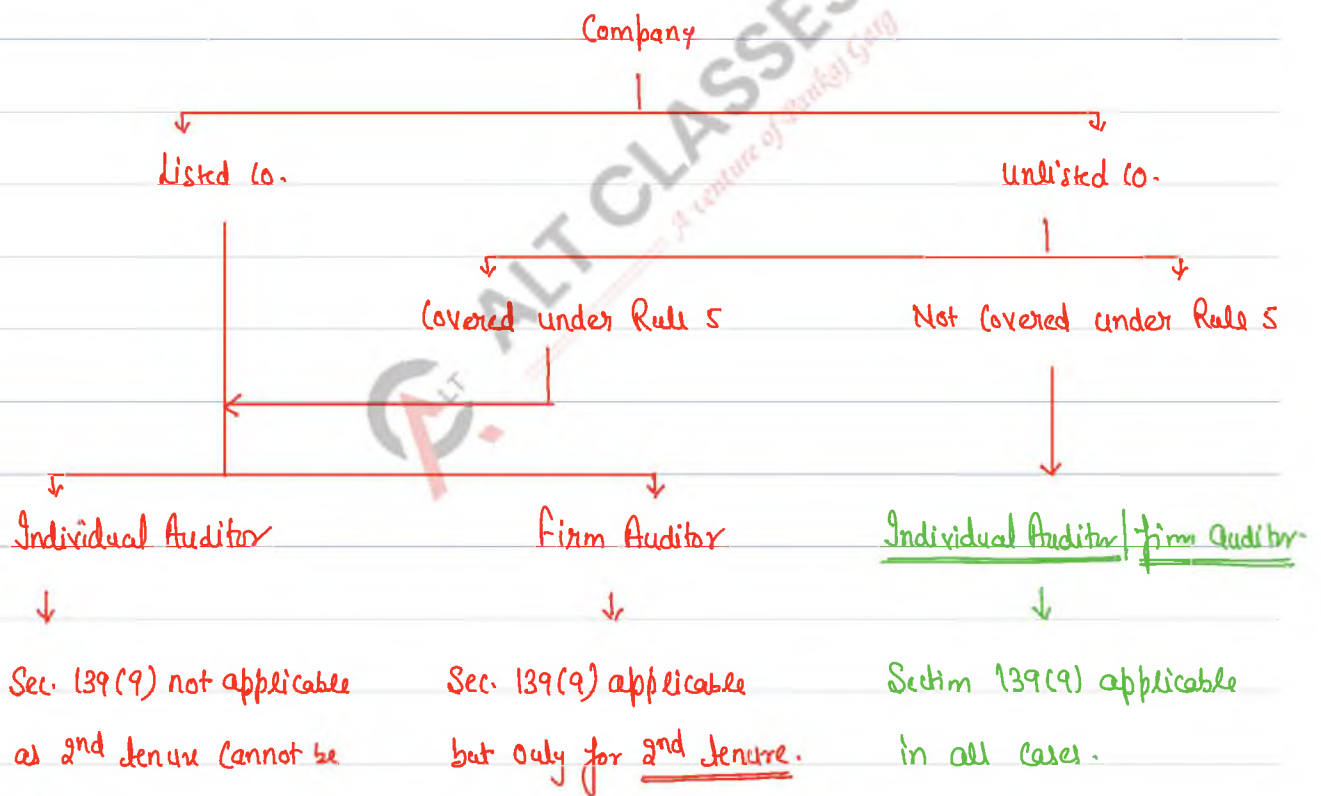 Company
Listed Co.
Unlisted Co.
Covered under Rule 5
Not Covered under Rule 5
Individual Auditor
Firm Auditor
Individual Auditor / firm auditor
Sec. 139(9) not applicable
as 2nd tenure Cannot be
Sec. 139(9) applicable
but only for 2nd tenure.
Section 139(9) applicable
in all Cases.
ALT CLASSES
A venture of Pankaj Garg
ALT